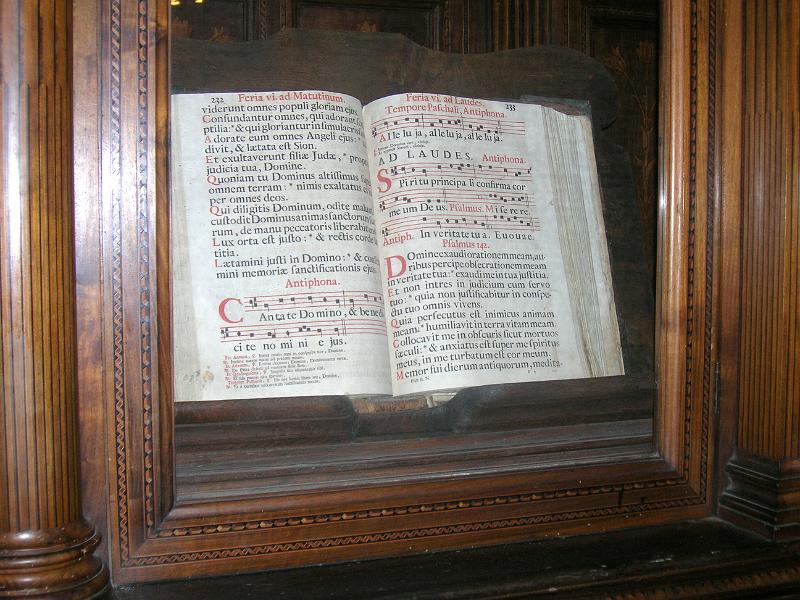 232 Feria vi. ad Matutinum.
viderunt omnes populi gloriam ejus.
Confundantur omnes, qui adorant
ptilia: * & qui gloriantur in simulacris
Adorate eum omnes Angeli ejus:
divit, & lætata est Sion.
Et exultaverunt filiæ Judæ, * prop
judicia tua, Domine.
Quoniam tu Dominus altissimus su
omnem terram: * nimis exaltatus es
per omnes deos.
Qui diligitis Dominum, odite malu
custodit Dominus animas sanctorum
rum, de manu peccatoris liberabit
Lux orta est justo: * & rectis corde
titia.
Lætamini justi in Domino: * & con
mini memoriæ sanctificationis ejus.
Antiphona.
Cantate Domino, & bene di
ci te no mi ni e jus.
Feria vi. ad Laudes. 233
Tempore Paschali, Antiphona.
Alle lu ja, alle lu ja, alle lu ja.
AD LAUDES. Antiphona.
Spi ri tu principa li confirma cor
me um De us. Psalmus. Mi se re re.
Antiph. In veritate tu a. E u o u a e.
Psalmus 142.
Domine exaudi orationem meam, au-
ribus percipe obsecrationem meam
in veritate tua: * exaudi me in tua justitia.
Et non intres in judicium cum servo
tuo: * quia non justificabitur in conspe-
ctu tuo omnis vivens.
Quia persecutus est inimicus animam
meam: * humiliavit in terra vitam meam.
Collocavit me in obscuris sicut mortuos
sæculi: * & anxiatus est super me spiritus
meus, in me turbatum est cor meum.
Memor fui dierum antiquorum, medita-